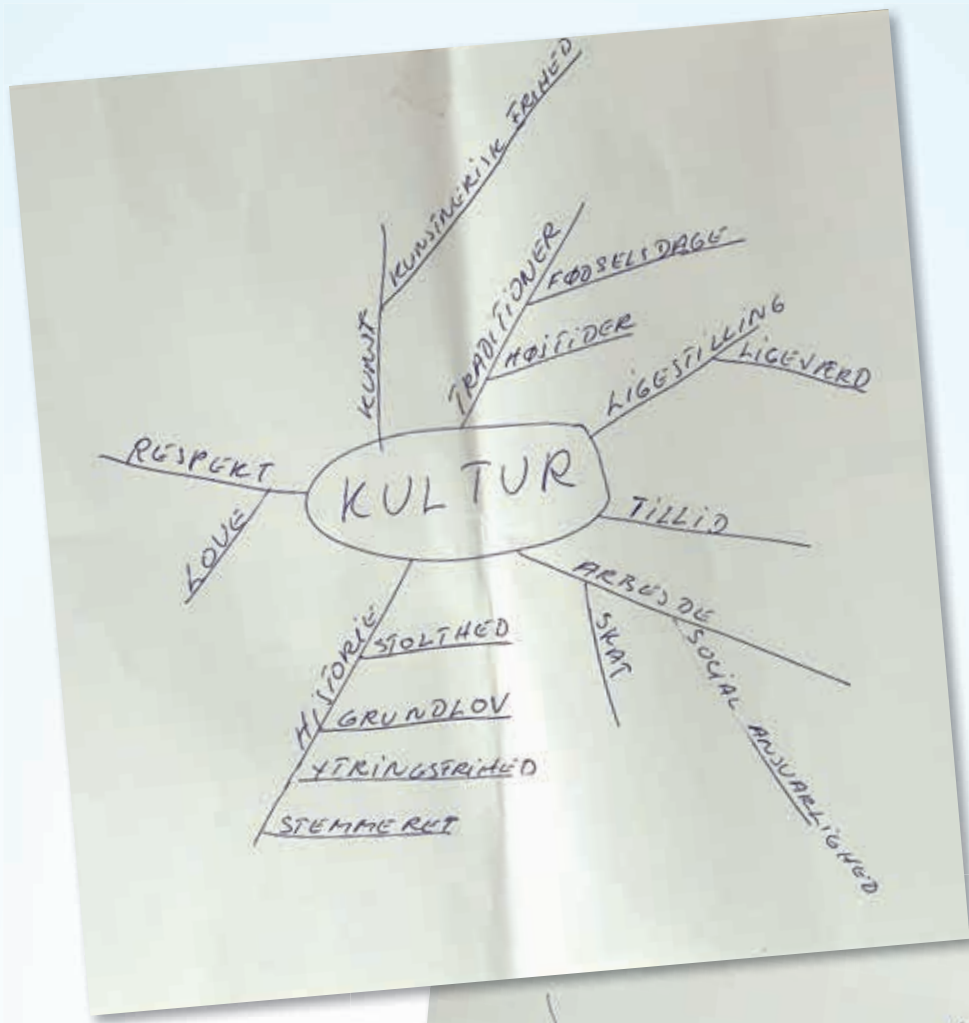 KULTUR
KUNST
KUNSTNERISK FRIHED
TRADITIONER
FØDSELSDAGE
HØJTIDER
LIGESTILLING
LIGEVÆRD
TILLID
ARBEJDE
SKAT
SOCIAL ANSVARLIGHED
HISTORIE
STOLTHED
GRUNDLOV
YTRINGSFRIHED
STEMMERET
RESPEKT
LOVE